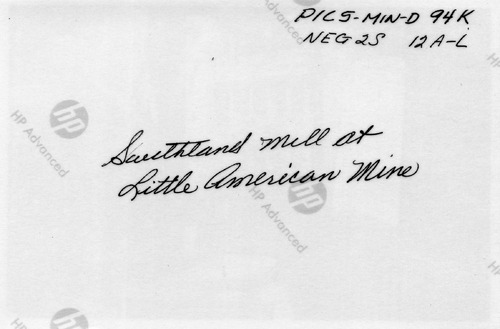 PICS-MIN-D 94K
NEG 25 12A-L
Southland Mill at
Little American Mine
hp
HP Advanced
hp
HP Advanced
hp
HP Advanced
hp
HP Advanced